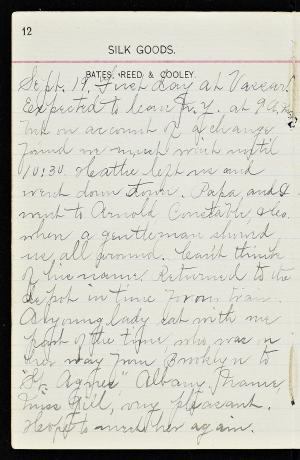 12
SILK GOODS.
BATES, REED & COOLEY.
Sept. 19. First day at Vassar.
Expected to leave N.Y. at 9 A.M.
but on account of a change
found we must wait until
10:30. Hattie left us and
went down town. Papa and I
went to Arnold Constable, &co.
when a gentleman showed
us all around. Can't think
of his name. Returned to the
depot in time for our train.
A young lady sat with me
part of the time who was on
her way from Brooklyn to
"St. Agnes" Albany. Name,
Miss Gill, very pleasant.
Hope to meet her again.